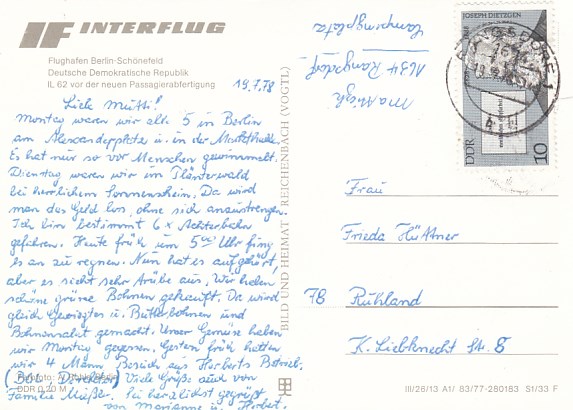 INTERFLUG
Flughafen Berlin-Schönefeld
Deutsche Demokratische Republik
IL 62 vor der neuen Passagierabfertigung
19.7.78
Liebe Mutti!
Montag waren wir alle 5 in Berlin
am Alexanderplatz u. in der Markthalle.
Es hat nur so vor Menschen gewimmelt.
Dienstag waren wir im Plänterwald
bei herrlichem Sonnenschein. Da wird
man das Geld los, ohne sich anzustrengen.
Ich bin bestimmt 6 x Achterbahn
gefahren. Heute früh um 5⁰⁰ Uhr fing
es an zu regnen. Nun hat es aufgehört,
aber es sieht sehr trübe aus. Wir haben
schöne grüne Bohnen gekauft. Da wird
gleich Gewiegtes u. Butterbohnen und
Bohnensalat gemacht. Unser Gemüse haben
wir Montag gegessen. Gestern früh hatten
wir 4 Mann Besuch aus Herberts Betrieb.
(BGL, Direktor) Viele Grüße auch von
Familie Müßer. Sei herzlichst gegrüßt
von Marianne u. Herbert.
DDR 0,20 M
BILD UND HEIMAT REICHENBACH (VOGTL)
1634 Rangsdorf
Campingplatz
JOSEPH DIETZGEN
DDR
10
RANGSDORF 1
Frau
Frieda Hüttner
78 Ruhland
K. Liebknecht Str. 8
III/26/13 A1/ 83/77-280183 S1/33 F